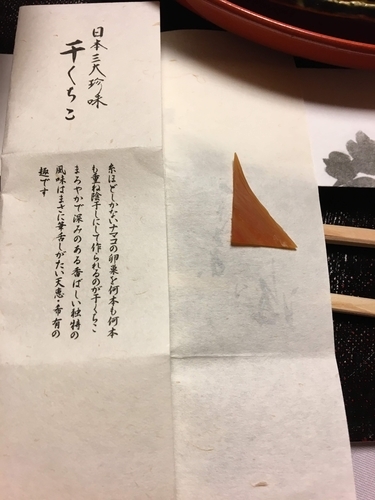 日本三大珍味
干くちこ
糸ほどしかないナマコの卵巣を何本も何本
も重ね陰干しにして作られるのが干くちこ
まろやかで深みのある香ばしい独特の
風味はまさに筆舌しがたい天恵・希有の
趣です